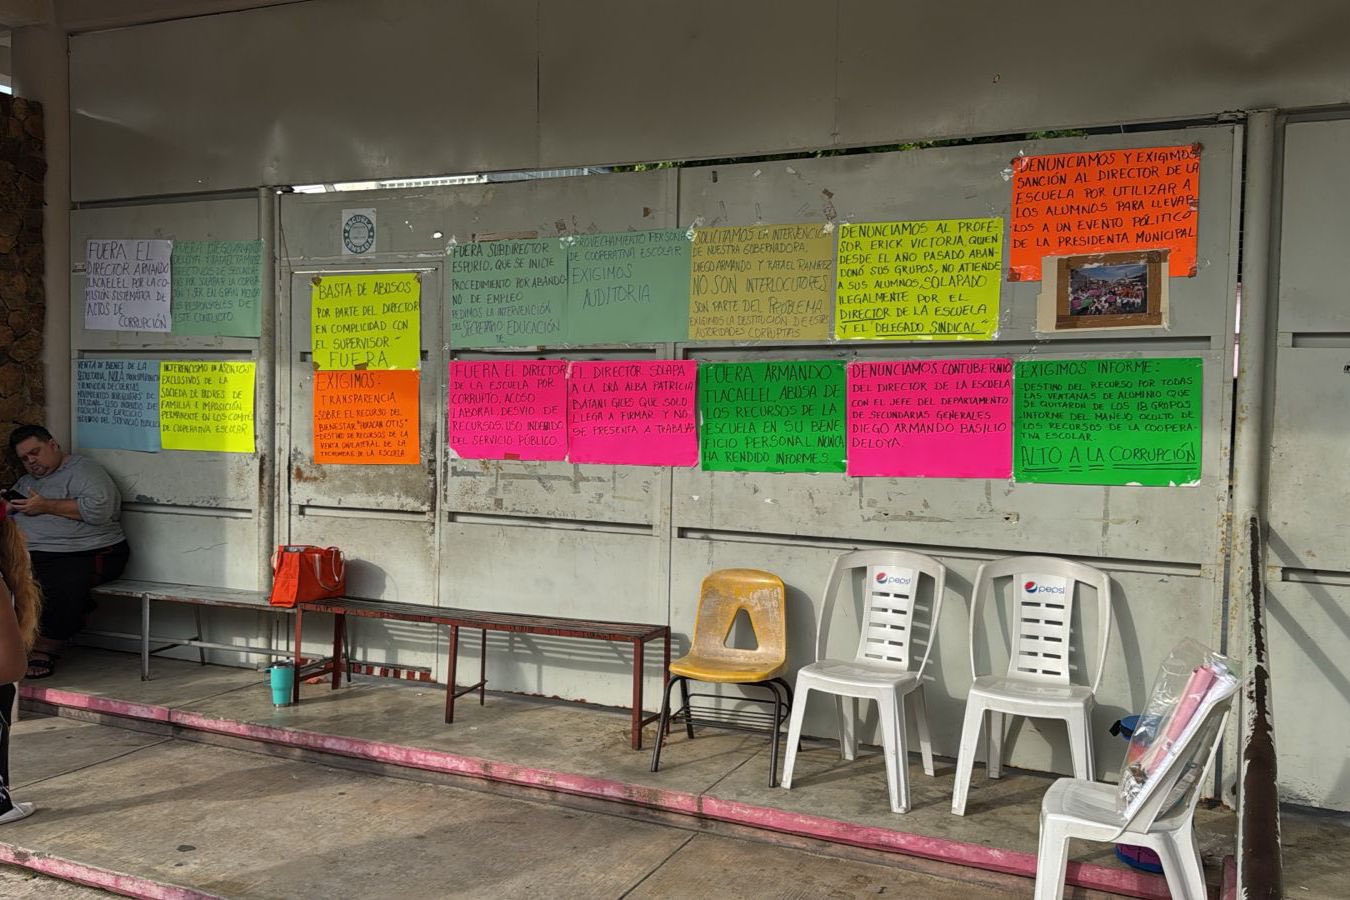 FUERA EL
DIRECTOR ARMANDO
TLACAELEL POR LA CO-
MISIÓN SISTEMÁTICA DE
ACTOS DE
CORRUPCIÓN
POR SOLAPAR LA
RESPONSABLES DE
ESTE CONFLICTO
VENTA DE BIENES DE LA
SECRETARIA,
DEL SERVICIO PÚBLICO
EXCLUSIVOS DE LA
SOCIEDAD DE PADRES DE
FAMILIA E IMPOSICIÓN
PERMANENTE EN LOS COMITÉS
DE COOPERATIVA ESCOLAR
BASTA DE ABUSOS
POR PARTE DEL DIRECTOR
EN COMPLICIDAD CON
EL SUPERVISOR-
FUERA
EXIGIMOS:
TRANSPARENCIA
-SOBRE EL RECURSO DEL
BIENESTAR "HURACAN OTIS"
-DESTINO DE RECURSOS DE LA
VENTA UNILATERAL DE LA
TECHUMBRE DE LA ESCUELA
FUERA SUBDIRECTOR
ESPURIO, QUE SE INICIE
PROCEDIMIENTO POR ABANDO-
NO DE EMPLEO
PEDIMOS LA INTERVENCIÓN
DEL SECRETARIO EDUCACIÓN
PROVECHAMIENTO PERSONAL
DE COOPERATIVA ESCOLAR
EXIGIMOS
AUDITORIA
SOLICITAMOS LA INTERVENCIÓN
DE NUESTRA GOBERNADORA.
DIEGO ARMANDO Y RAFAEL RAMIREZ
NO SON INTERLOCUTORES
SON PARTE DEL PROBLEMA
EXIGIMOS LA DESTITUCIÓN DE ESTAS
AUTORIDADES CORRUPTAS
DENUNCIAMOS AL PROFE-
SOR ERICK VICTORIA QUIEN
DESDE EL AÑO PASADO ABAN-
DONÓ SUS GRUPOS, NO ATIENDE
A SUS ALUMNOS, SOLAPADO
ILEGALMENTE POR EL
DIRECTOR DE LA ESCUELA
Y EL "DELEGADO SINDICAL"
DENUNCIAMOS Y EXIGIMOS
SANCIÓN AL DIRECTOR DE LA
ESCUELA POR UTILIZAR A
LOS ALUMNOS PARA LLEVAR
LOS A UN EVENTO POLÍTICO
DE LA PRESIDENTA MUNICIPAL
FUERA EL DIRECTOR
DE LA ESCUELA POR
CORRUPTO, ACOSO
LABORAL, DESVIO DE
RECURSOS, USO INDEBIDO
DEL SERVICIO PÚBLICO.
EL DIRECTOR SOLAPA
A LA DRA ALBA PATRICIA
BATANI GILES QUE SOLO
LLEGA A FIRMAR Y NO
SE PRESENTA A TRABAJAR
FUERA ARMANDO
TLACAELEL, ABUSA DE
LOS RECURSOS DE LA
ESCUELA EN SU BENE
FICIO PERSONAL, NUNCA
HA RENDIDO INFORMES
DENUNCIAMOS CONTUBERNIO
DEL DIRECTOR DE LA ESCUELA
CON EL JEFE DEL DEPARTAMENTO
DE SECUNDARIAS GENERALES
DIEGO ARMANDO BASILIO
DELOYA.
EXIGIMOS INFORME:
DESTINO DEL RECURSO POR TODAS
LAS VENTANAS DE ALUMINIO QUE
SE QUITARON DE LOS 18 GRUPOS
INFORME DEL MANEJO OCULTO DE
LOS RECURSOS DE LA COOPERA-
TIVA ESCOLAR.
ALTO A LA CORRUPCIÓN
pepsi
pepsi